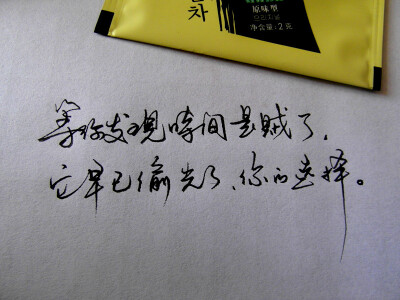 차
原味型
净含量:2克
等你发现時间是贼了,
它早已偷光了、你的选择。